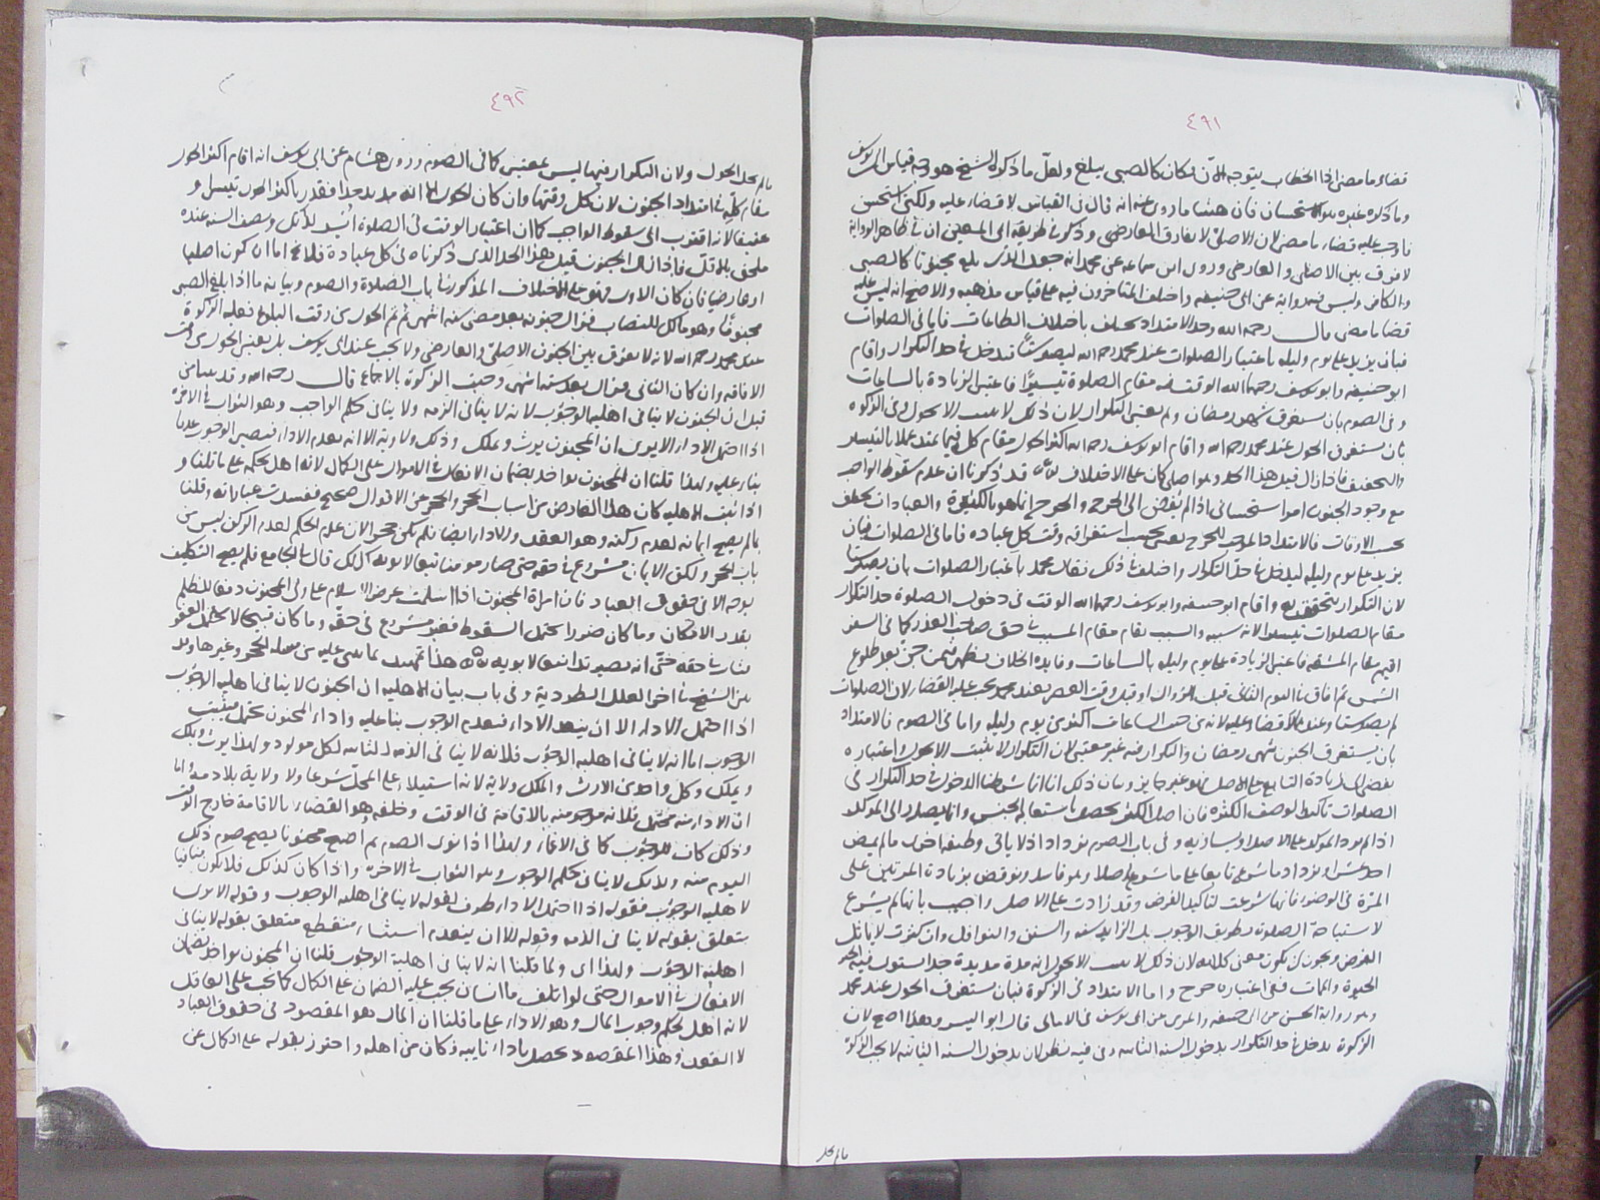 ٤٩١
قضاء ما مضى اذ الخطاب يتوجه الآن فكان كالصبى يبلغ ولعل ما ذكره الشيخ هو وجه قياس ابى يوسف
وما ذكره غيره هو الاستحسان فان هشاما روى عنه انه قال فى القياس لا قضاء عليه ولكنى استحسن
فاوجب عليه قضاء ما مضى لان الاصلى لا يفارق العارضى
لا فرق بين الاصلى والعارضى وروى ابن سماعة عن محمد انه جعل الذى بلغ مجنونا كالصبى
والكافر وليس فيه رواية عن ابى حنيفة واختلف المتاخرون فيه على قياس مذهبه والاصح انه ليس عليه
قضاء ما مضى قال رحمه الله وحد الامتداد يختلف باختلاف الطاعات فاما فى الصلوات
فبان يزيد على يوم وليلة باعتبار الصلوات عند محمد رحمه الله ليصير ستا فتدخل فى حد التكرار واقام
ابو حنيفة وابو يوسف رحمهما الله الوقت فيه مقام الصلوة تيسيرا فاعتبر الزيادة بالساعات
وفى الصوم بان يستغرق شهر رمضان ولم يعتبر التكرار لان ذلك لا يثبت الا بحول وفى الزكوة
بان يستغرق الحول عند محمد رحمه الله واقام ابو يوسف رحمه الله اكثر الحول مقام كله فيما يمتد عملا بالتيسير
والتخفيف فاذا زال قبل هذا الحد وهو اصلى كان على الاختلاف قد ذكرنا ان عدم سقوط الواجب
مع وجود الجنون امر استحسانى اذا لم يفض الى الحرج والحرج انما هو بالكثرة والعبادات تختلف
بحسب الاوقات فالامتداد الموجب للحرج يعتبر بحسب استغراقه وقت كل عبادة فاما فى الصلوات فبان
يزيد على يوم وليلة ليدخل فى حد التكرار واختلف فى ذلك فقال محمد باعتبار الصلوات بان يصير ستا
لان التكرار يتحقق به واقام ابو حنيفة وابو يوسف رحمهما الله الوقت فى دخول الصلوة حد التكرار
مقام الصلوات تيسيرا لانه سببه والسبب يقام مقام المسبب فى حق صاحب العذر كما فى السفر
اقيم مقام المشقة فاعتبر الزيادة على يوم وليلة بالساعات وفايدة الخلاف تظهر فيمن جن بعد طلوع
الشمس ثم افاق فى اليوم الثانى قبل الزوال او قبل وقت العصر فعند محمد يجب عليه القضاء لان الصلوات
لم يصر ستا وعندهما لا قضاء عليه لانه من حيث الساعات اكثر من يوم وليلة واما فى الصوم فالامتداد
بان يستغرق الجنون شهر رمضان والتكرار فيه غير معتبر لان التكرار لا يثبت الا بحول واعتباره
يفضى الى زيادة التابع على الاصل فهو غير جايز وبيان ذلك انا انما شرطنا الدخول فى حد التكرار فى
الصلوات تاكيدا لوصف الكثرة فان اصل الكثرة يحصل باستيعاب الجنس وانما يصار الى الموكد
اذا لم يزد الموكد على الاصل او يساويه وفى باب الصوم يزداد اذ لا ياتى وظيفة اخرى ما لم يمض
احد عشر شهرا ويزداد ما شرع تابعا على ما شرع اصلا وهو فاسد ونوقض بزيادة المرتين على
المرة فى الوضوء فانها شرعت لتاكيد الفرض وقد زادت على الاصل واجيب بانها لم يشرع
لاستباحة الصلوة بطريق الوجوب بل الزايد سنة والسنن والنوافل وان كثرت لا يماثل
الفرض ويجوز ان يكون معنى كلامه لان ذلك لا يثبت الا بحول انه مدة مديدة جدا يستوى فيه الحيوة
الحيوة والممات ففى اعتباره حرج واما الامتداد فى الزكوة فبان يستغرق الحول عند محمد
وهو رواية الحسن عن ابى حنيفة والمروى عن ابى يوسف فى الامالى قال ابو اليسر وهذا اصح لان
الزكوة يدخل فى حد التكرار بدخول السنة الثانية وفيه نظر لان بدخول السنة الثانية لا يجب الزكوة
ما لم يحل
٤٩٢
ما لم يحل الحول ولان التكرار فيها ليس بمعتبر كما فى الصوم وروى هشام عن ابى يوسف انه اقام اكثر الحول
مقام كله فى امتداد الجنون لان كل وقتها وان كان الحول الا انه مديد جدا فقدر باكثر الحول تيسيرا و
تخفيفا لانه اقرب الى سقوط الواجب كما ان اعتبار الوقت فى الصلوة ايسر لذلك ونصف السنة عنده
ملحق بالاقل فاذا زال الجنون قبل هذا الحد الذى ذكرناه فى كل عبادة فلا يخ اما ان يكون اصليا
او عارضيا فان كان الاول فهو على الاختلاف المذكور فى باب الصلاة والصوم وبيانه ما اذا بلغ الصبى
مجنونا وهو مالك للنصاب فزال جنونه بعد مضى ستة اشهر ثم تم الحول من وقت البلوغ فعليه الزكوة
عند محمد رحمه الله لانه لا يفرق بين الجنون الاصلى والعارضى ولا يجب عند ابى يوسف بل يعتبر الحول من وقت
الافاقة وان كان الثانى فزال بعد ستة اشهر وجبت الزكوة بالاجماع قال رحمه الله وقد بينا من
قبل ان الجنون لا ينافى اهلية الوجوب لانه لا ينافى الذمة ولا ينافى حكم الواجب وهو الثواب فى الاخرة
اذا احتمل الاداء الا يرى ان المجنون يرث ويملك وذلك ولاية الا انه يعدم الاداء فيصير الوجوب عدما
بناء عليه ولهذا قلنا ان المجنون يواخذ بضمان الافعال فى الاموال على الكمال لانه اهل لحكمه على ما قلنا و
اذا ثبت الاهلية كان هذا العارض من اسباب الحجر والحجر عن الاقوال صحيح ففسدت عباراته وقلنا
لم يصح ايمانه لعدم ركنه وهو العقد والاداء ايضا فلم يكن حجرا لان عدم الحكم لعدم الركن ليس من
باب الحجر ولكن الايمان مشروع فى حقه حتى صار مومنا تبعا لابويه كذلك قال فى الجامع فلم يصح التكليف
بوجه الا فى حقوق العباد فان امراة المجنون اذا اسلمت عرض الاسلام على ولى المجنون دفعا للظلم
بقدر الامكان وما كان ضررا يحتمل السقوط فغير مشروع فى حقه وما كان قبيحا لا يحتمل العفو
فثابت فى حقه حتى انه يصير مرتدا تبعا لابويه هذا تمهيد لما بنى عليه من مسئلة الحجر وغيرها وقد
بين الشيخ فى اخر العلل الطردية وفى باب بيان الاهلية ان الجنون لا ينافى اهلية الوجوب
اذا احتمل الاداء الا ان ينعدم الاداء فينعدم الوجوب بناء عليه واداء المجنون يحتمل فيثبت
الوجوب اما انه لا ينافى اهلية الوجوب فلانه لا ينافى الذمة لانها ثابتة لكل مولود ولهذا يرث ويملك
ويملك وكل واحد من الارث والملك ولاية لانه استيلاء على المحل شرعا ولا ولاية بلا ذمة واما
ان الاداء منه محتمل فلانه مرجو منه بالافاقة فى الوقت وخلفه هو القضاء بالافاقة خارج الوقت
وذلك كاف للوجوب كما فى الاغماء ولهذا اذا نوى الصوم ثم اصبح مجنونا يصح صوم ذلك
اليوم منه ولذلك لا ينافى حكم الوجوب وهو الثواب فى الاخرة واذا كان كذلك فلا يكون منافيا
لاهلية الوجوب فقوله اذا احتمل الاداء ظرف لقوله لا ينافى اهلية الوجوب وقوله الا يرى
يتعلق بقوله لا ينافى الذمة وقوله الا ان ينعدم استثناء منقطع متعلق بقوله لا ينافى
اهلية الوجوب ولهذا اى ولما قلنا انه لا ينافى اهلية الوجوب قلنا ان المجنون يواخذ بضمان
الافعال فى الاموال حتى لو اتلف مال انسان يجب عليه الضمان على الكمال كما يجب على العاقل
لانه اهل لحكم وجوب المال وهو الاداء على ما قلنا ان المال هو المقصود فى حقوق العباد
لا الفعل وهذا المقصود يحصل باداء نايبه فكان من اهله واحترز بقوله على الكمال عن